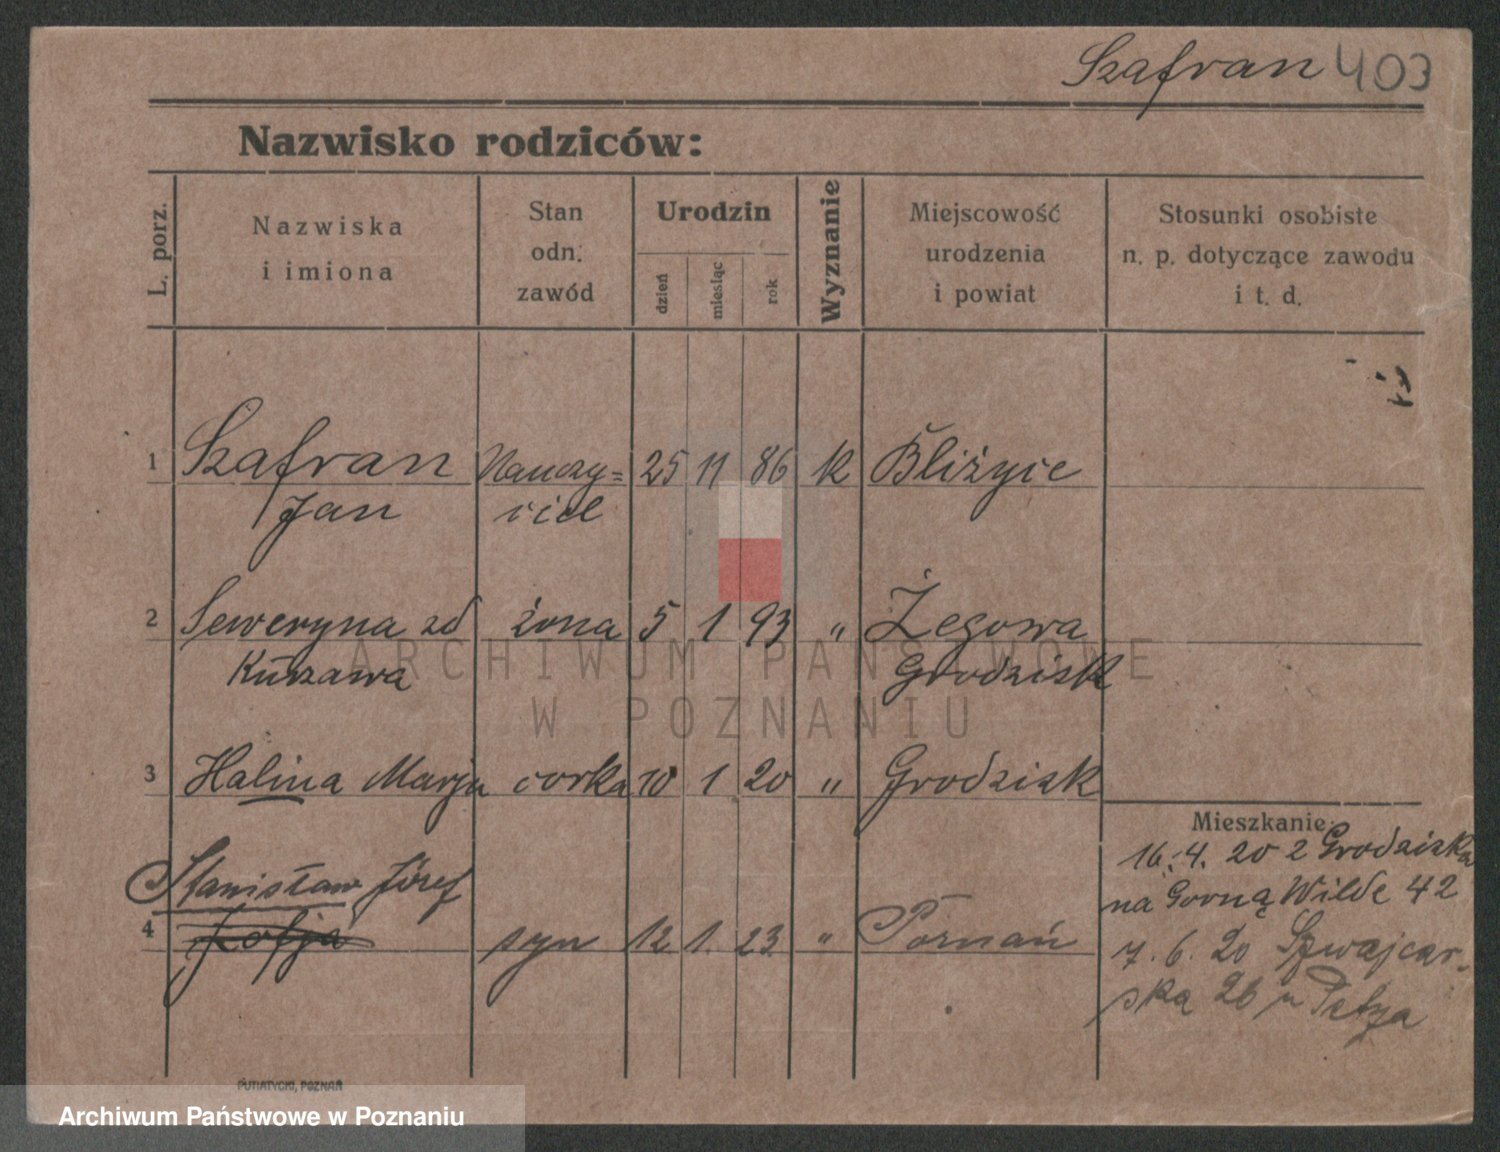 Szafran 403
Nazwisko rodziców:
L. porz.
Nazwiska
i imiona
Stan
odn.
zawód
Urodzin
dzień
miesiąc
rok
Wyznanie
Miejscowość
urodzenia
i powiat
Stosunki osobiste
n. p. dotyczące zawodu
i t. d.
1 Szafran Nauczy= 25 11 86 k Bliżyce
Jan ciel
2 Seweryna zd żona 5 1 93 " Żegowa
Kurzawa Grodzisk
3 Halina Marja corka 10 1 20 " Grodzisk
Mieszkanie:
16.4.20 z Grodziska
na Gorną Wilde 42
7.6.20 Szwajcar-
ska 26
Stanisław Józef
4 Zofja syn 12 1. 23 " Poznań
PUTIATYCKI, POZNAŃ
ARCHIWUM PAŃSTWOWE
W POZNANIU
Archiwum Państwowe w Poznaniu